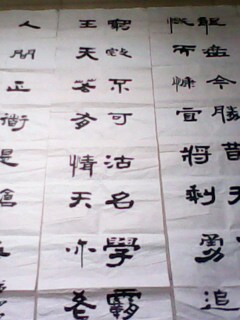 龍盤今勝昔天
慨而慷宜將剩勇追
窮寇不可沽名學霸
王天若有情天亦老
人間正衟是滄